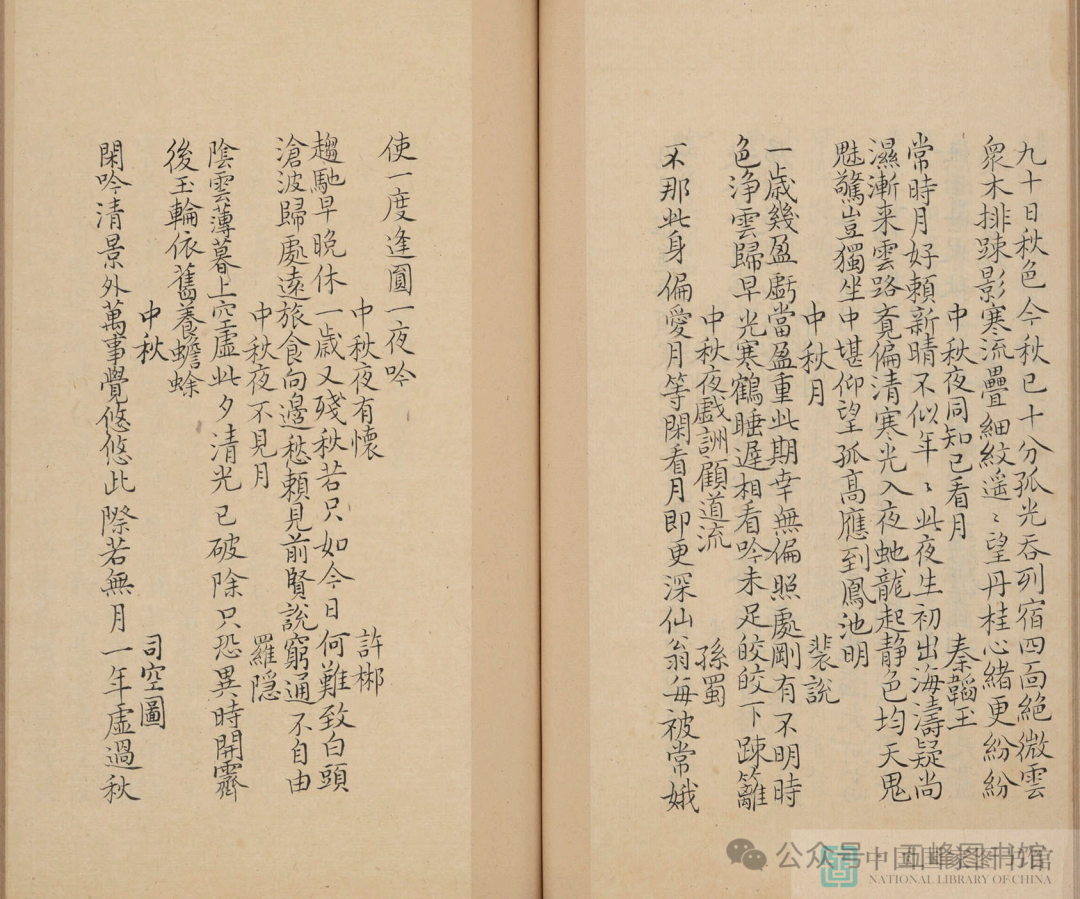 九十日秋色今秋已十分孤光吞列宿四面絕微雲
衆木排踈影寒流疊細紋遥〻望丹桂心緒更紛紛
中秋夜同知已看月 秦韜玉
常時月好頼新晴不似年〻此夜生初出海濤疑尚
濕漸来雲路竟偏清寒光入夜虵龍起静色均天鬼
魅驚豈獨坐中堪仰望孤高應到鳳池明
中秋月 裴說
一歲幾盈虧當盈重此期幸無偏照處剛有不明時
色浄雲歸早光寒鶴睡遲相看吟未足皎皎下踈籬
中秋夜戲詶顧道流 孫蜀
不那此身偏愛月等閑看月即更深仙翁每被常娥
使一度逢圓一夜吟
中秋夜有懷 許郴
趨馳早晩休一歲又殘秋若只如今日何難致白頭
滄波歸處遠旅食向邊愁頼見前賢說窮通不自由
中秋夜不見月 羅隱
陰雲薄暮上空虛此夕清光已破除只恐異時開霽
後玉輪依舊養蟾蜍
中秋 司空圖
閑吟清景外萬事覺悠悠此際若無月一年虛過秋
公众号·西峰图书馆
中国国家图书馆
NATIONAL LIBRARY OF CHINA